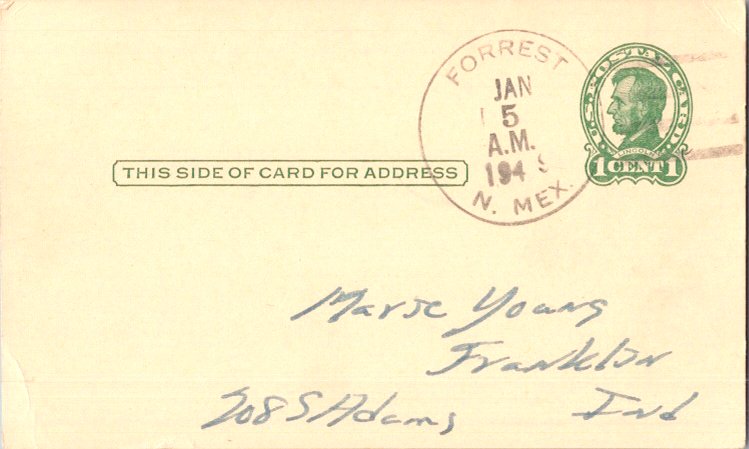 FORREST
JAN
5
A.M.
194
N. MEX.
U.S. POSTAL CARD
LINCOLN
1 CENT 1
THIS SIDE OF CARD FOR ADDRESS
Marie Young
Franklin
S Adams Ind